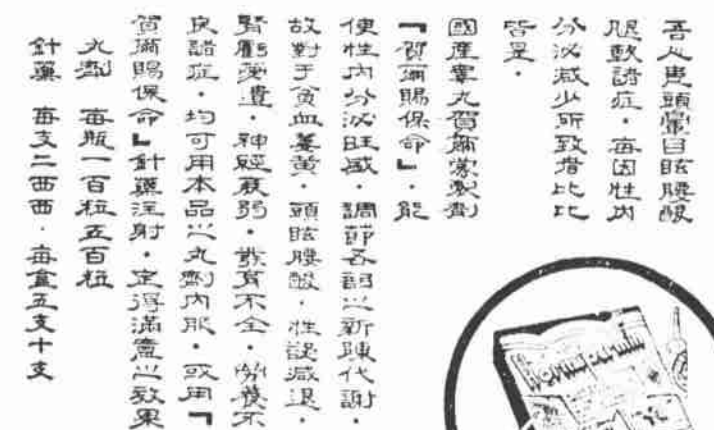 吾人患頭暈目眩腰酸
腿軟諸症．每因性內
分泌减少所致者比比
皆是．
國產睾丸賀爾蒙製劑
『賀爾賜保命』．能
使性內分泌旺盛．調節各部之新陳代謝．
故對于貧血萎黃．頭眩腰酸．性慾减退．
腎虧夢遺．神經衰弱．發育不全．營養不
良諸症．均可用本品之丸劑內服．或用『
賀爾賜保命』針藥注射．定得滿意之效果
丸劑 每瓶一百粒五百粒
針藥 每支二西西．每盒五支十支